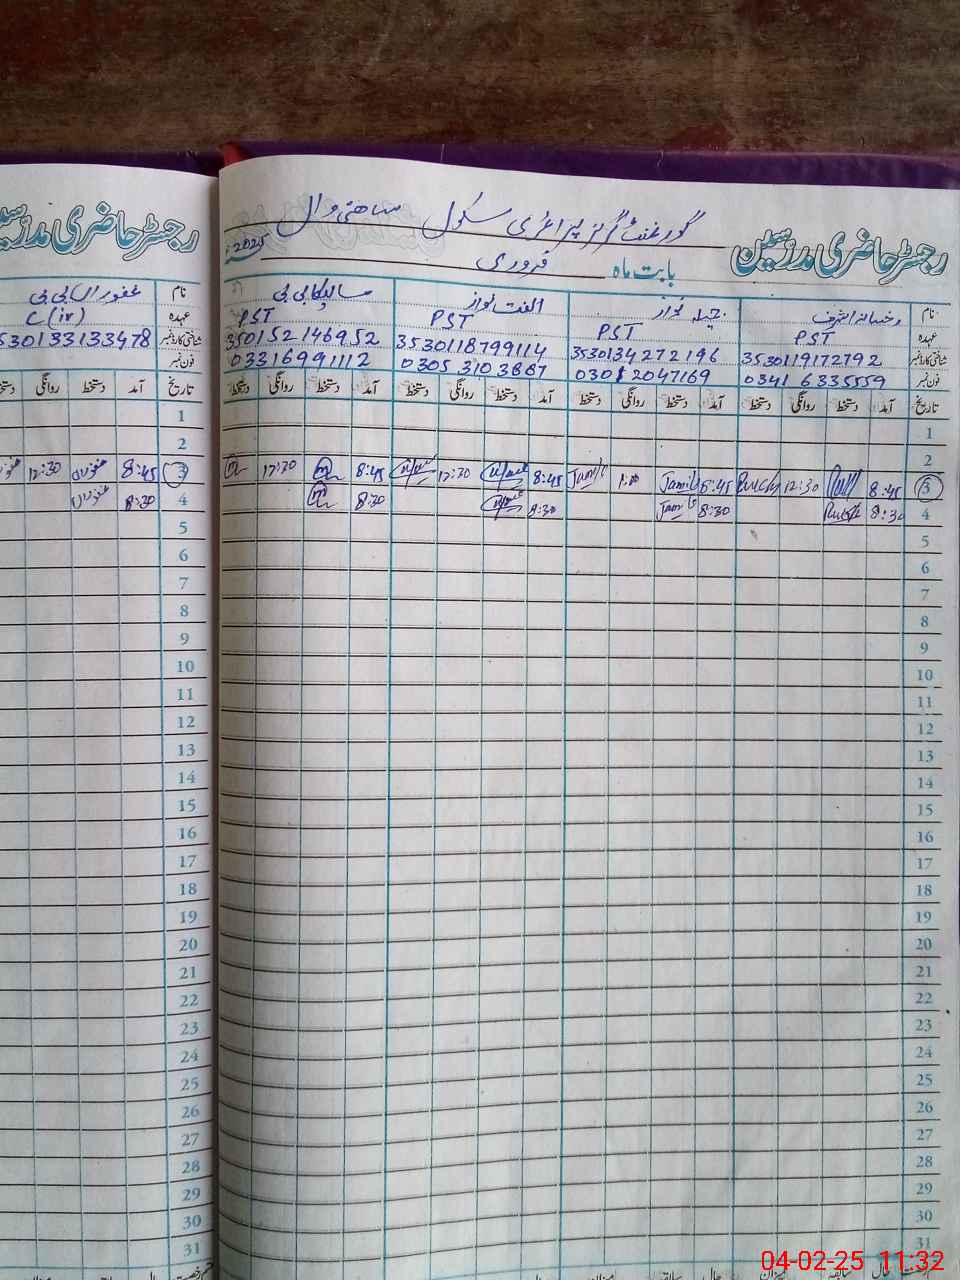 رجسٹر حاضری مدرسین
گورنمنٹ گرلز پرائمری سکول ساھنی وال
بابت ماہ فروری 2025
نام رخسانہ اشرف جمیلہ نواز الفت نواز بی بی
عہدہ PST PST PST PST
شناختی کارڈ نمبر 3530119172792 3530134272196 3530118799114 3501521469 52
فون نمبر 0341 6335559 03012047169 0305 3103887 03316991112
تاریخ آمد دستخط روانگی دستخط آمد دستخط روانگی دستخط آمد دستخط روانگی دستخط آمد دستخط روانگی دستخط
1
2
3 8:45 12:30 8:45 Jamil 1:00 Jamil 8:45 12:30 8:45 12:30
4 8:30 8:30 Jamil 8:30 8:30
5
6
7
8
9
10
11
12
13
14
15
16
17
18
19
20
21
22
23
24
25
26
27
28
29
30
31
رجسٹر حاضری مدرسین
نام غفوراں بی بی
عہدہ C(iv)
شناختی کارڈ نمبر 530133133478
فون نمبر
تاریخ آمد دستخط روانگی دستخط
1
2
3 8:45 غفوراں 12:30
4 8:30 غفوراں
5
6
7
8
9
10
11
12
13
14
15
16
17
18
19
20
21
22
23
24
25
26
27
28
29
30
31
04-02-25 11:32